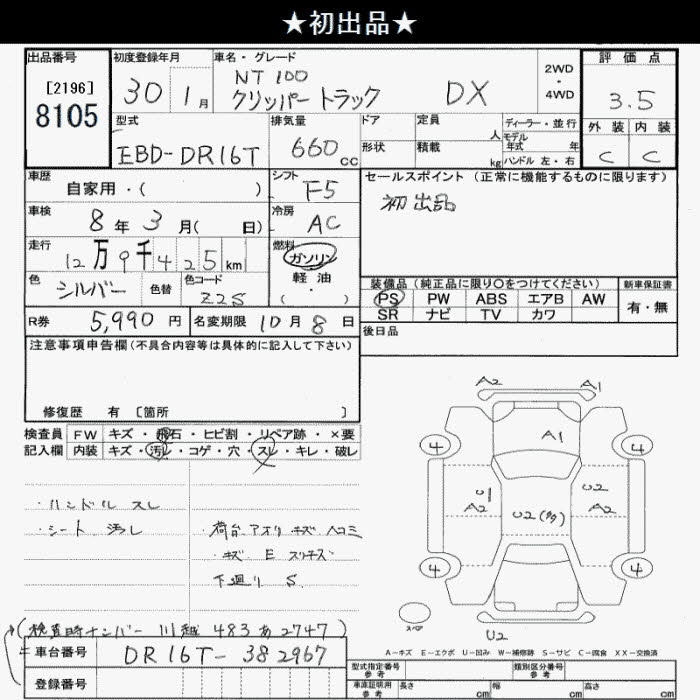 ★初出品★
出品番号
[2196]
8105
初度登録年月
30 1月
車名・グレード
NT100
クリッパートラック DX
2WD
・
4WD
評価点
3.5
外装 内装
C C
型式
EBD-DR16T
排気量
660cc
ドア
形状
定員 人
積載 kg
ディーラー・並行
モデル
年式 年
ハンドル 左・右
車歴
自家用・( )
シフト
F5
セールスポイント(正常に機能するものに限ります)
初出品
車検
8年3月( 日)
冷房
AC
走行
12万9千425km
燃料
ガソリン
軽油
( ・ )
色
シルバー
色替
色コード
Z2S
装備品(純正品に限り○をつけてください)
新車保証書
PS PW ABS エアB AW
SR ナビ TV カワ
有・無
R券 5,990円
名変期限 10月8日
後日品
注意事項申告欄(不具合内容等は具体的に記入して下さい)
修復歴 有 [箇所 ]
検査員 FW キズ・飛石・ヒビ割・リペア跡・×要
記入欄 内装 キズ・汚レ・コゲ・穴・スレ・キレ・破レ
・ハンドル スレ
・シート 汚レ
・荷台、アオリ キズ ヘコミ
・キズ E スリキズ
下廻り S
A2 A1
A1
4 4
U1
A2
U2
A2
U2(多)
4 4
スペア
U2
A-キズ E-エクボ U-凹み W-補修跡 S-サビ C-腐食 XX-交換済
(検査時ナンバー 川越 483 あ 2747)
車台番号 DR16T-382967
登録番号
型式指定番号
参考
類別区分番号
参考
車庫証明用
参考
長さ cm
幅 cm
高さ cm